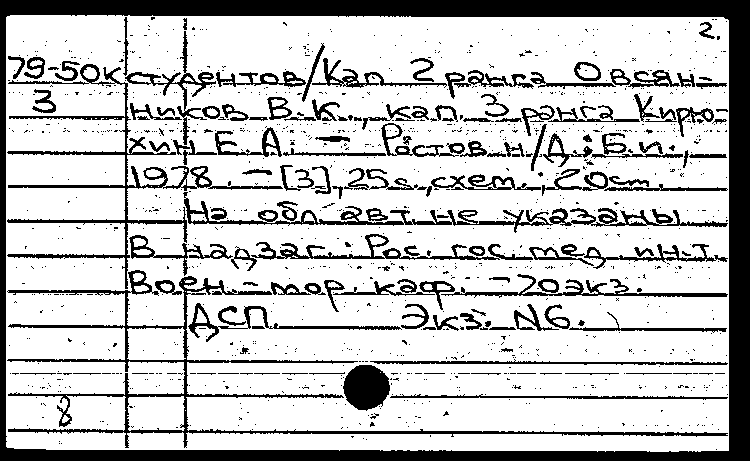 2.
79-50к студентов/Кап 2 ранга Овсян-
3 ников В.К., кап. 3 ранга Кирю-
хин Е.А. — Ростов н/Д.: Б.и.,
1978. — [3], 25с., схем.; 20 cm.
На обл. авт. не указаны
В надзаг.: Рос. гос. мед. ин-т.
Воен.-мор. каф. — 70 экз.
ДСП. Экз. N6.
8